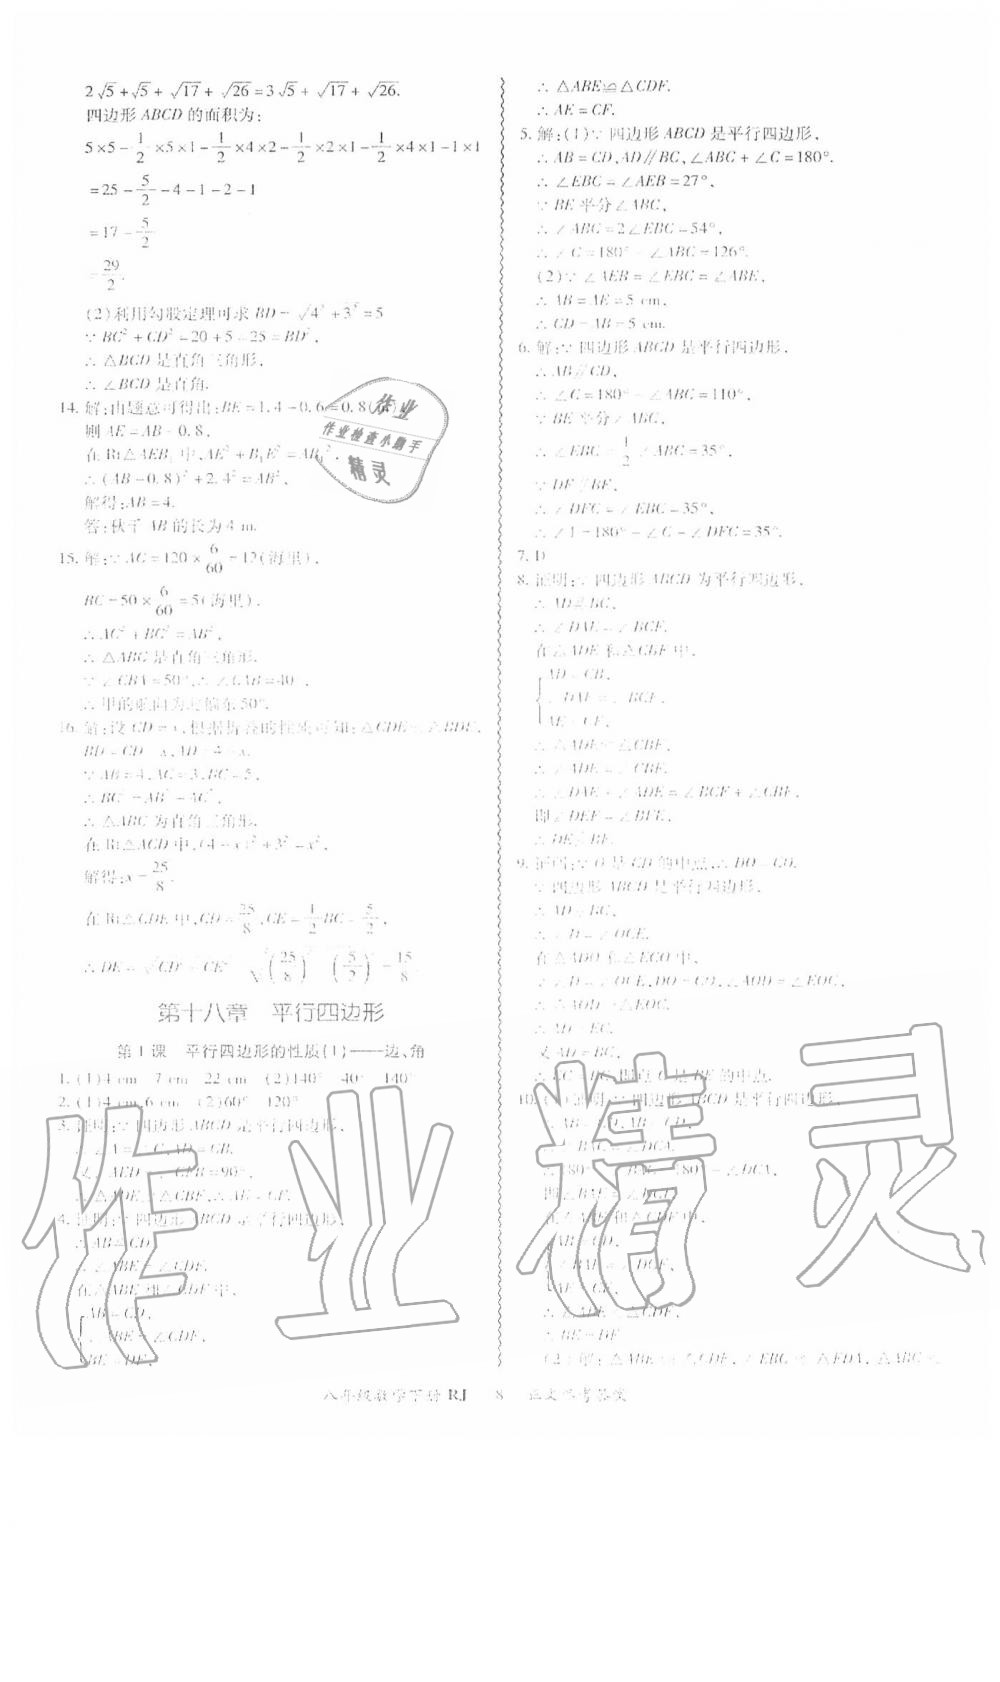 2√5+√5+√17+√26=3√5+√17+√26.
四边形ABCD的面积为:
5×5-1/2×5×1-1/2×4×2-1/2×2×1-1/2×4×1-1×1
=25-5/2-4-1-2-1
=17-5/2
=29/2.
(2)利用勾股定理可求BD=√4²+3²=5
∵BC²+CD²=20+5=25=BD²,
∴△BCD是直角三角形,
∴∠BCD是直角.
14.解:由题意可得出:BE=1.4-0.6=0.8
则AE=AB-0.8,
在Rt△AEB₁中,AE²+B₁E²=AB₁²,
∴(AB-0.8)²+2.4²=AB²,
解得:AB=4.
答:秋千AB的长为4 m.
15.解:∵AC=120×6/60=12(海里),
BC=50×6/60=5(海里).
∴AC²+BC²=AB²,
∴△ABC是直角三角形.
∵∠CBA=50°,∴∠CAB=40°.
∴甲的航向为北偏东50°.
16.解:设CD=x,根据折叠的性质可知:△CDE≌△BDE,
BD=CD=x,AD=4-x.
∵AB=4,AC=3,BC=5,
∴BC²=AB²+AC²,
∴△ABC为直角三角形.
在Rt△ACD中,(4-x)²+3²=x²,
解得:x=25/8.
在Rt△CDE中,CD=25/8,CE=1/2BC=5/2,
∴DE=√CD²-CE²=√(25/8)²-(5/2)²=15/8.
第十八章 平行四边形
第1课 平行四边形的性质(1)——边、角
1.(1)4 cm 7 cm 22 cm (2)140° 40° 140°
2.(1)4 cm,6 cm (2)60° 120°
3.证明:∵四边形ABCD是平行四边形,
∴∠A=∠C,AD=CB.
又∠AED=∠CFB=90°,
∴△ADE≌△CBF,∴AE=CF.
4.证明:∵四边形ABCD是平行四边形,
∴AB=CD,
∴∠ABE=∠CDF.
在△ABE和△CDF中,
AB=CD,
∠ABE=∠CDF,
BE=DF,
∴△ABE≌△CDF.
∴AE=CF.
5.解:(1)∵四边形ABCD是平行四边形,
∴AB=CD,AD∥BC,∠ABC+∠C=180°.
∴∠EBC=∠AEB=27°,
∵BE平分∠ABC,
∴∠ABC=2∠EBC=54°,
∴∠C=180°-∠ABC=126°.
(2)∵∠AEB=∠EBC=∠ABE,
∴AB=AE=5 cm,
∴CD=AB=5 cm.
6.解:∵四边形ABCD是平行四边形,
∴AB∥CD,
∴∠C=180°-∠ABC=110°,
∵BE平分∠ABC,
∴∠EBC=1/2∠ABC=35°.
∵DF∥BE,
∴∠DFC=∠EBC=35°,
∴∠1=180°-∠C-∠DFC=35°.
7.D
8.证明:∵四边形ABCD为平行四边形,
∴AD∥BC,
∴∠DAE=∠BCF,
在△ADE和△CBF中,
AD=CB,
∠DAE=∠BCF,
AE=CF,
∴△ADE≌△CBF,
∴∠ADE=∠CBF,
∴∠DAE+∠ADE=∠BCF+∠CBF,
即∠DEF=∠BFE,
∴DE∥BF.
9.证明:∵O是CD的中点,∴DO=CO,
∵四边形ABCD是平行四边形,
∴AD∥BC,
∴∠D=∠OCE,
在△ADO和△ECO中,
∵∠D=∠OCE,DO=CO,∠AOD=∠EOC,
∴△AOD≌△EOC,
∴AD=EC,
又AD=BC,
∴EC=BC,即点C是BE的中点.
10.(1)证明:∵四边形ABCD是平行四边形,
∴AB=CD,AB∥CD,
∴∠BAC=∠DCA,
∴180°-∠BAC=180°-∠DCA,
即∠BAE=∠DCF,
在△BAE和△DCF中,
AB=CD,
∠BAE=∠DCF,
AE=CF,
∴△ABE≌△CDF,
∴BE=DF
(2)解:△ABE≌△CDF,△EBC≌△FDA,△ABC≌
作业
作业检查小助手
精灵
作业精灵
八年级数学下册 RJ 8 正文参考答案